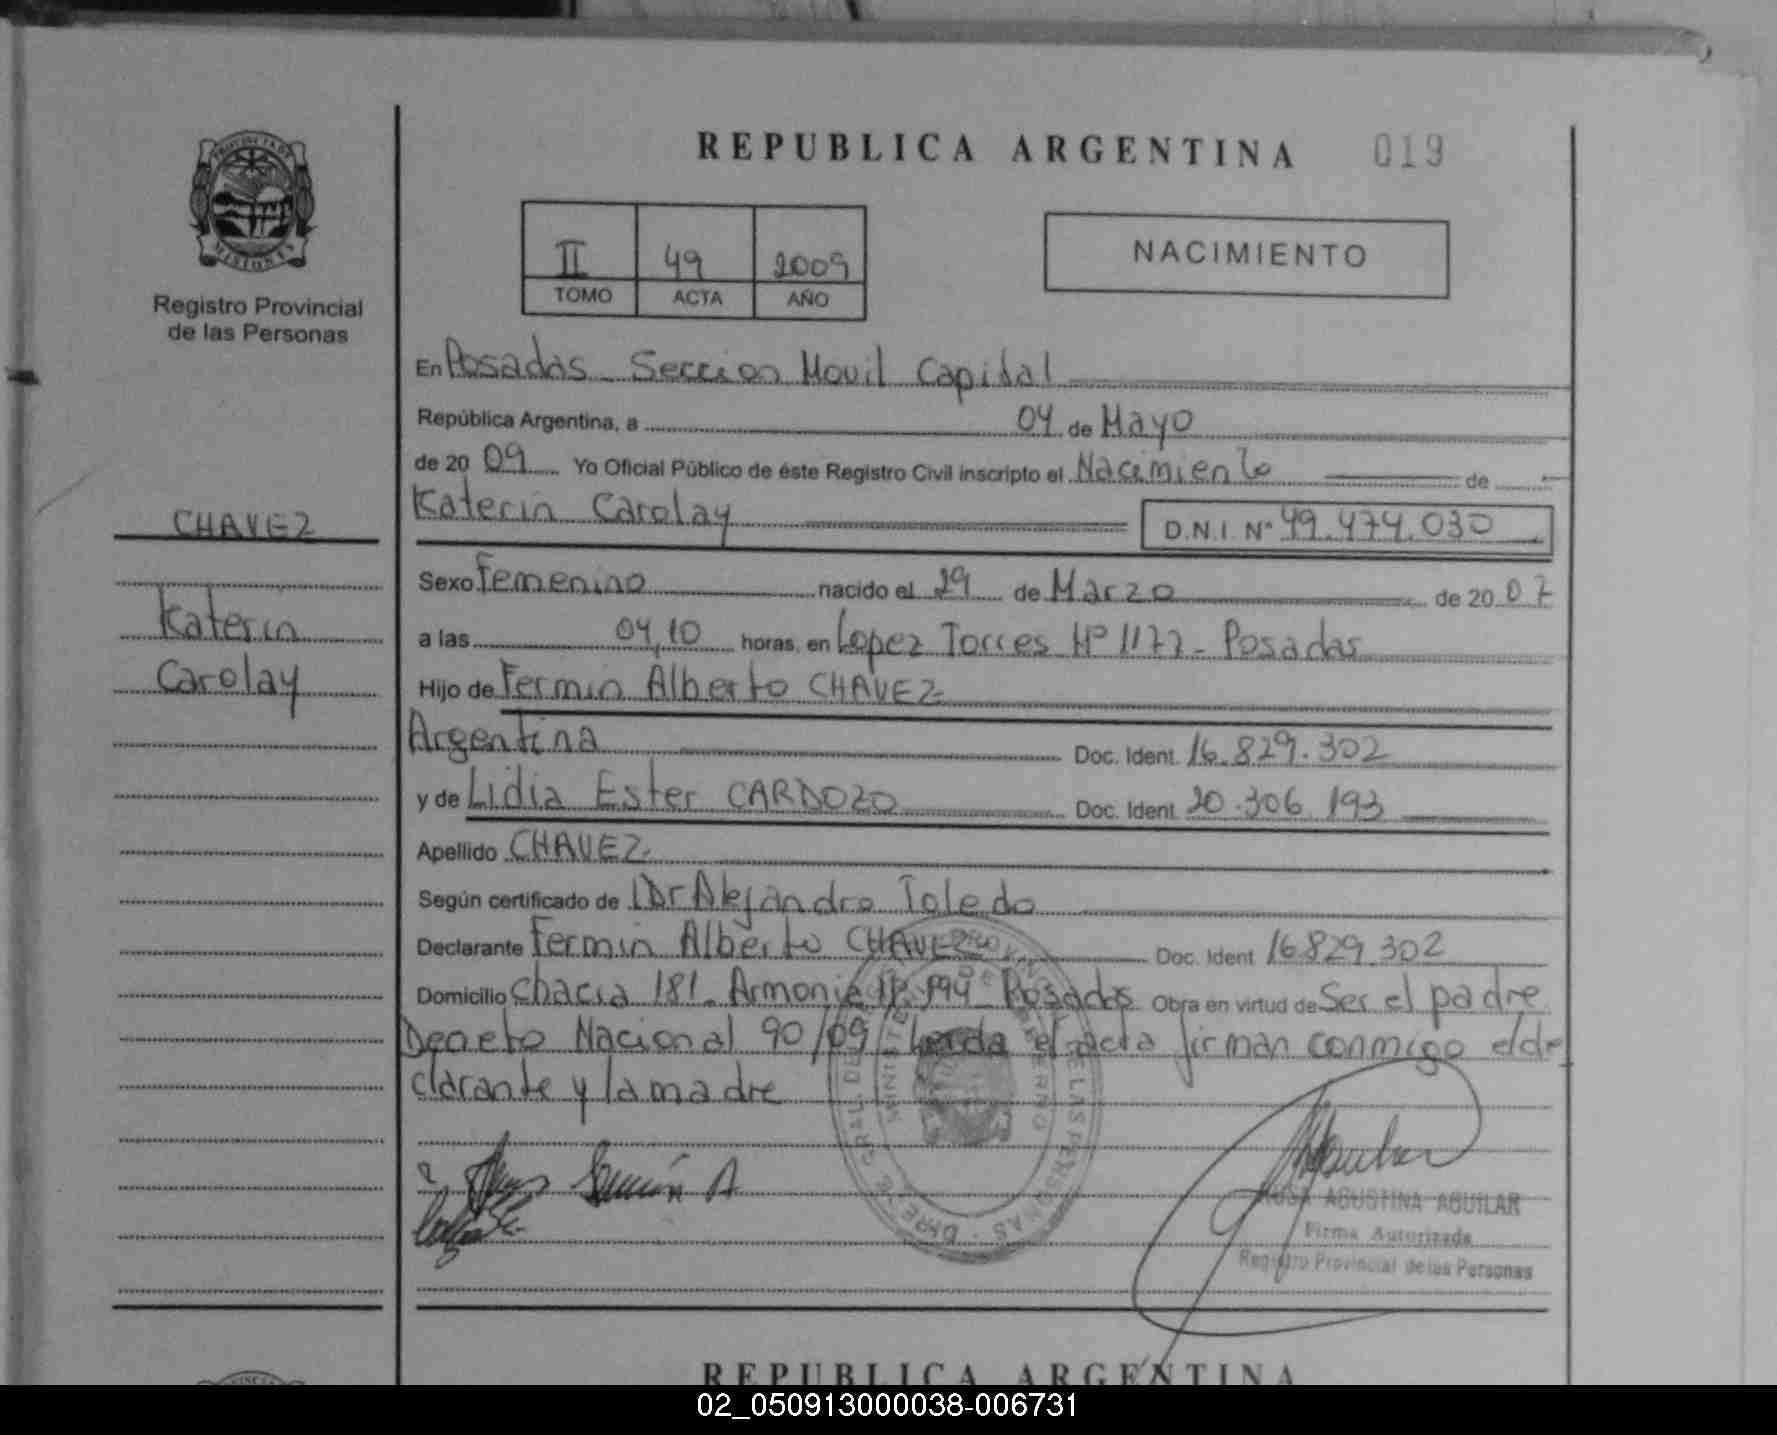 REPUBLICA ARGENTINA 019
PROVINCIA DE
MISIONES
Registro Provincial
de las Personas
II 49 2009
TOMO ACTA AÑO
NACIMIENTO
En Posadas Seccion Movil Capital
República Argentina, a 04 de Mayo
de 20 09 Yo Oficial Público de éste Registro Civil inscripto el Nacimiento de
Katerin Carolay D.N.I. Nº 49.474.030
CHAVEZ
Katerin
Carolay
Sexo Femenino nacido el 29 de Marzo de 20 07
a las 04,10 horas, en Lopez Torres Nº 1177 - Posadas
Hijo de Fermin Alberto CHAVEZ
Argentina Doc. Ident. 16.829.302
y de Lidia Ester CARDOZO Doc. Ident. 20.306.193
Apellido CHAVEZ
Según certificado de Dr Alejandro Toledo
Declarante Fermin Alberto CHAVEZ Doc. Ident 16829.302
Domicilio Chacra 181 Armonia Posadas Obra en virtud de Ser el padre
Decreto Nacional 90/09 el acta firman conmigo el de
clarante y la madre
ROSA AGUSTINA AGUILAR
Firma Autorizada
Registro Provincial de las Personas
REPUBLICA ARGENTINA
02_050913000038-006731